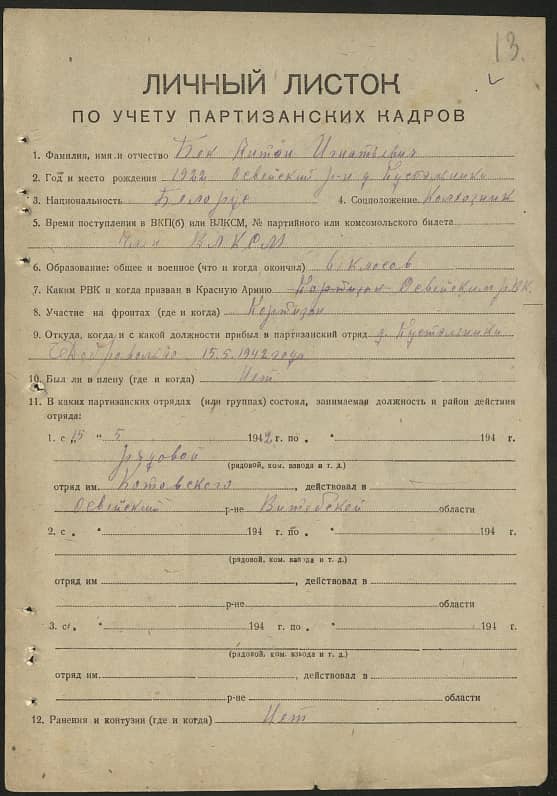 13.
ЛИЧНЫЙ ЛИСТОК
ПО УЧЕТУ ПАРТИЗАНСКИХ КАДРОВ
1. Фамилия, имя и отчество Бок Антон Игнатьевич
2. Год и место рождения 1922 Освейский р-н д.
3. Национальность Белорус 4. Соцположение Колхозник
5. Время поступления в ВКП(б) или ВЛКСМ, № партийного или комсомольского билета
Член ВЛКСМ
6. Образование: общее и военное (что и когда окончил) 6 класов
7. Каким РВК и когда призван в Красную Армию Освейским РВК
8. Участие на фронтах (где и когда) Партизан
9. Откуда, когда и с какой должности прибыл в партизанский отряд д.
Добровольно 15.5.1942 года
10. Был ли в плену (где и когда) Нет
11. В каких партизанских отрядах (или группах) состоял, занимаемая должность и район действия
отряда:
1. с „15 " 5 1942 г. по „ " 194 г.
рядовой
(рядовой, ком. взвода и т. д.)
отряд им. Котовского , действовал в
Освейский р-не Витебской области
2. с „ " 194 г. по „ " 194 г.
(рядовой, ком. взвода и т. д.)
отряд им , действовал в
р-не области
3. с „ " 194 г. по „ " 194 г.
(рядовой, ком. взвода и т. д.)
отряд им. , действовал в
р-не области
12. Ранения и контузии (где и когда) Нет